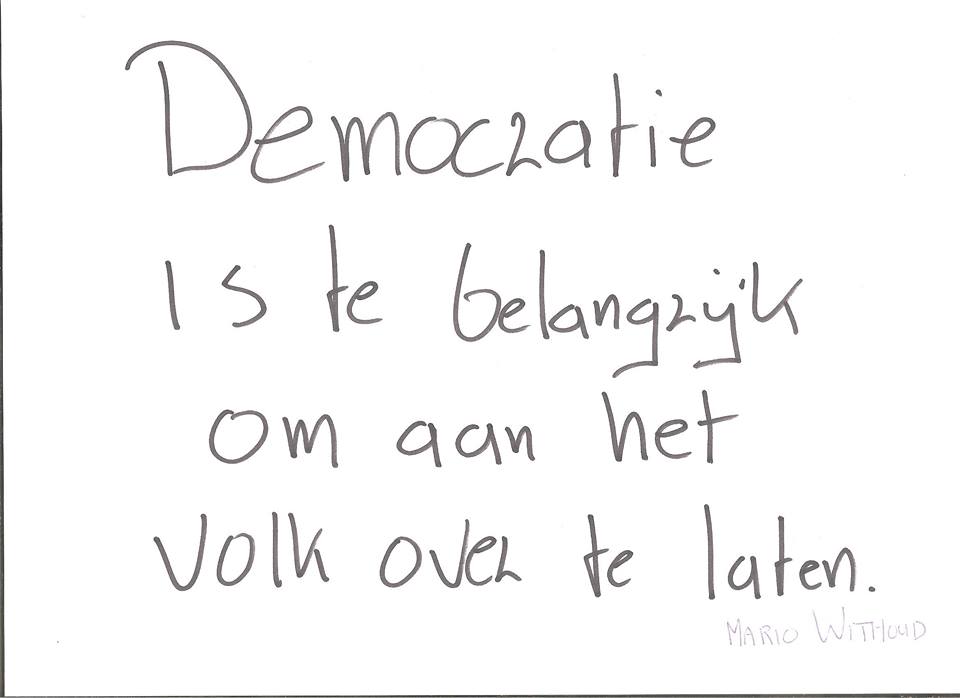 Democratie
is te belangrijk
om aan het
volk over te laten.
MARIO WITHOUD